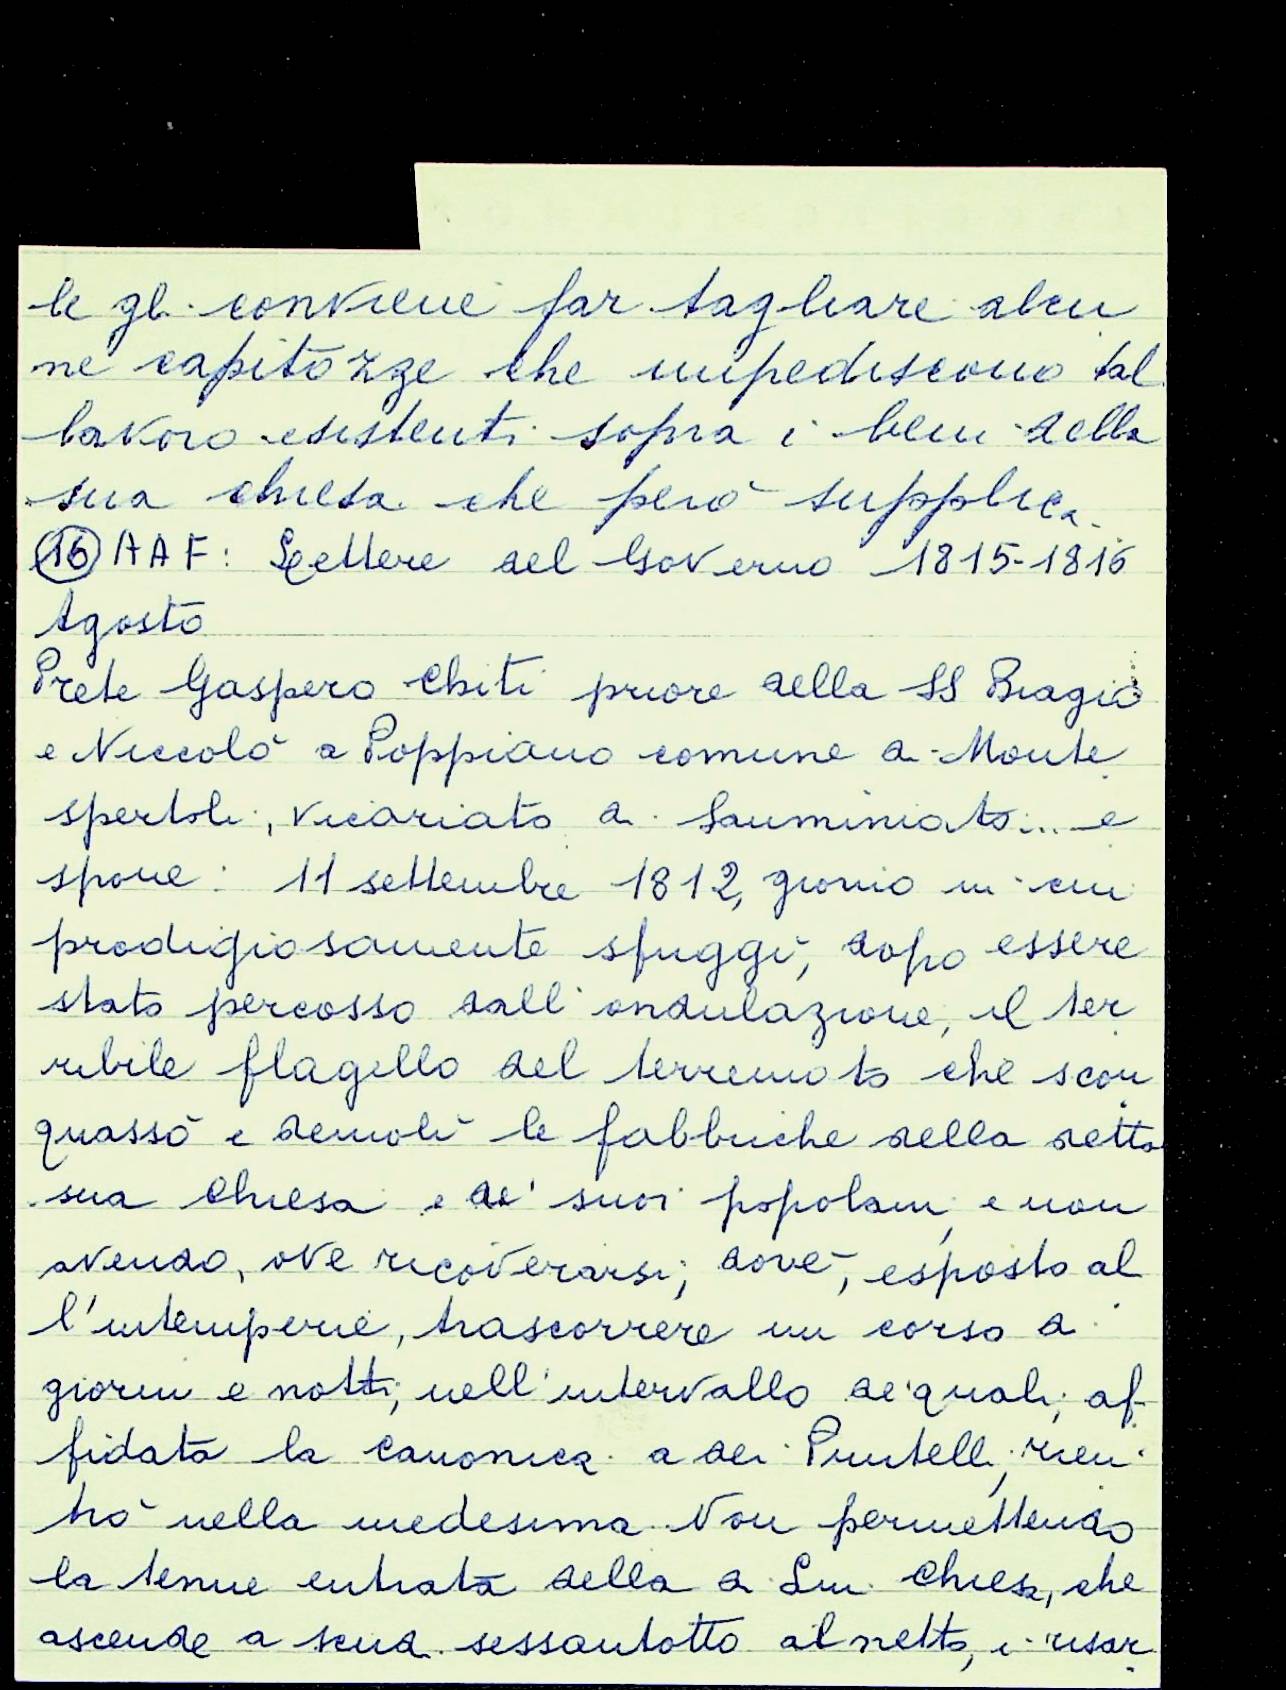 le gli conviene far tagliare alcu
ne capitozze che impediscono tal
lavoro esistenti sopra i beni della
sua chiesa che però supplica.
(16) AAF: Lettere del Governo 1815-1816
Agosto
Prete Gaspero Chiti priore della SS Biagio
e Niccolò a Poppiano comune di Monte
spertoli, vicariato di Sanminiato... e
spone: 11 settembre 1812, giorno in cui
prodigiosamente sfuggì, dopo essere
stato percosso dall'ondulazione, il ter
ribile flagello del terremoto che scon
quassò e demolì le fabbriche della detta
sua chiesa e de' suoi popolani, e non
avendo, ove ricoverarsi, dovè, esposto al
l'intemperie, trascorrere un corso di
giorni e notti, nell'intervallo de' quali, af-
fidata la canonica a dei Puntelli, rien
trò nella medesima. Non permettendo
la tenue entrata della di Lui chiesa, che
ascende a scudi sessantotto al netto, i risar